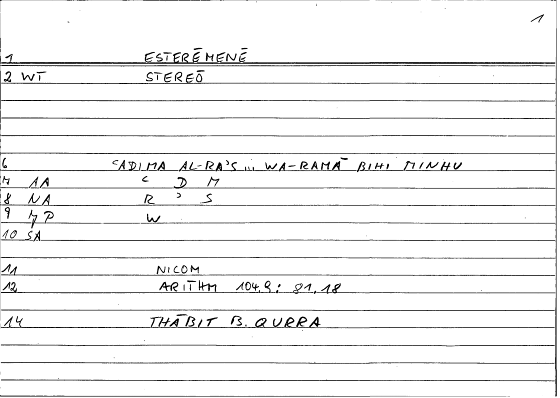 1
1 ESTERĒMENĒ
2 WT STEREŌ
6 ʿADIMA AL-RAʾS ... WA-RAMĀ BIHI MINHU
7 AA ʿ D M
8 NA R ʾ S
9 MP W
10 SA
11 NICOM
12 ARITHM 104.9 : 81.18
14 THĀBIT B. QURRA